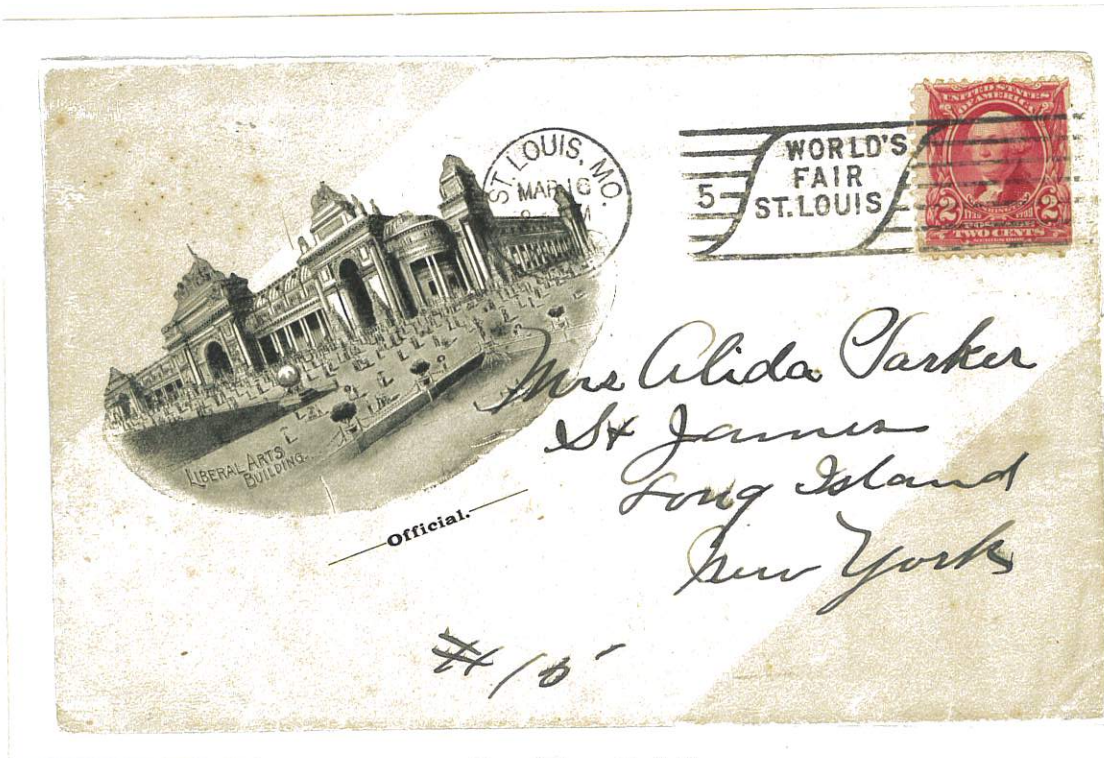 ST. LOUIS, MO.
MAR 16
5
WORLD'S
FAIR
ST. LOUIS
UNITED STATES
OF AMERICA
2 2
POSTAGE
TWO CENTS
LIBERAL ARTS
BUILDING.
Official.
Mrs Alida Parker
St James
Long Island
New York